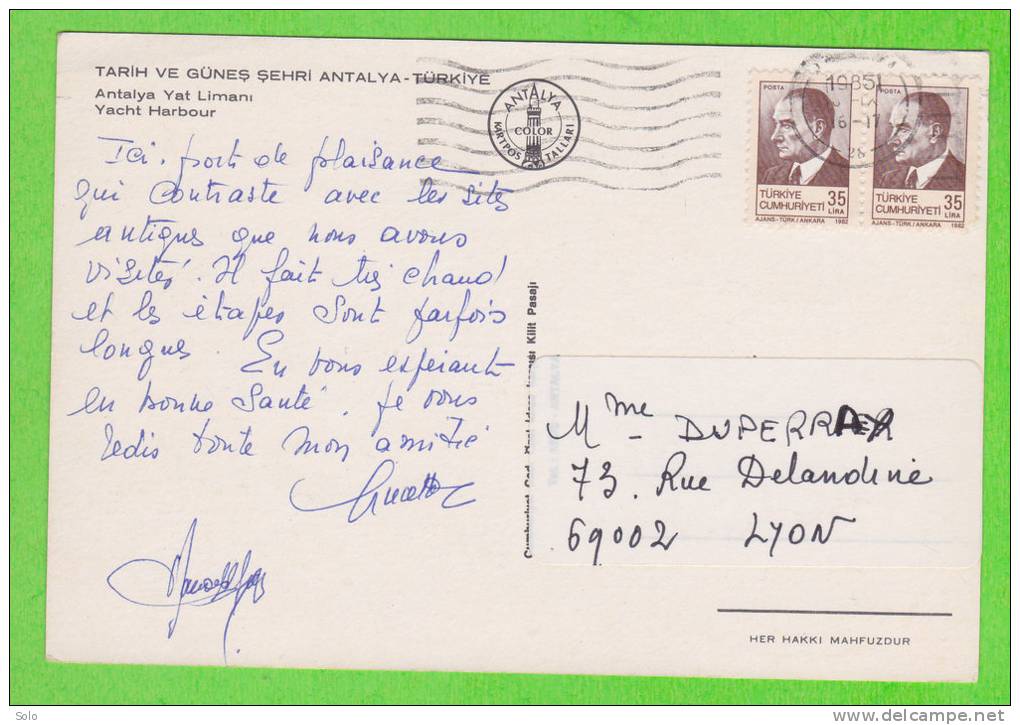 TARİH VE GÜNEŞ ŞEHRİ ANTALYA-TÜRKİYE
Antalya Yat Limanı
Yacht Harbour
Ici. port de plaisance
qui contraste avec les sites
antiques que nous avons
visités. Il fait très chaud
et les étapes sont parfois
longues. En vous espérant
en bonne santé. Je vous
redis toute mon amitié
ANTALYA
COLOR
KARTPOSTALLARI
1985
16-17
POSTA
TÜRKİYE
CUMHURİYETİ 35
LİRA
AJANS-TÜRK/ANKARA 1982
POSTA
TÜRKİYE
CUMHURİYETİ 35
LİRA
AJANS-TÜRK/ANKARA 1982
Kilit Pasajı
Mme DUPERRAY
73. Rue Delandine
69002 LYON
HER HAKKI MAHFUZDUR
Solo
www.delcampe.net